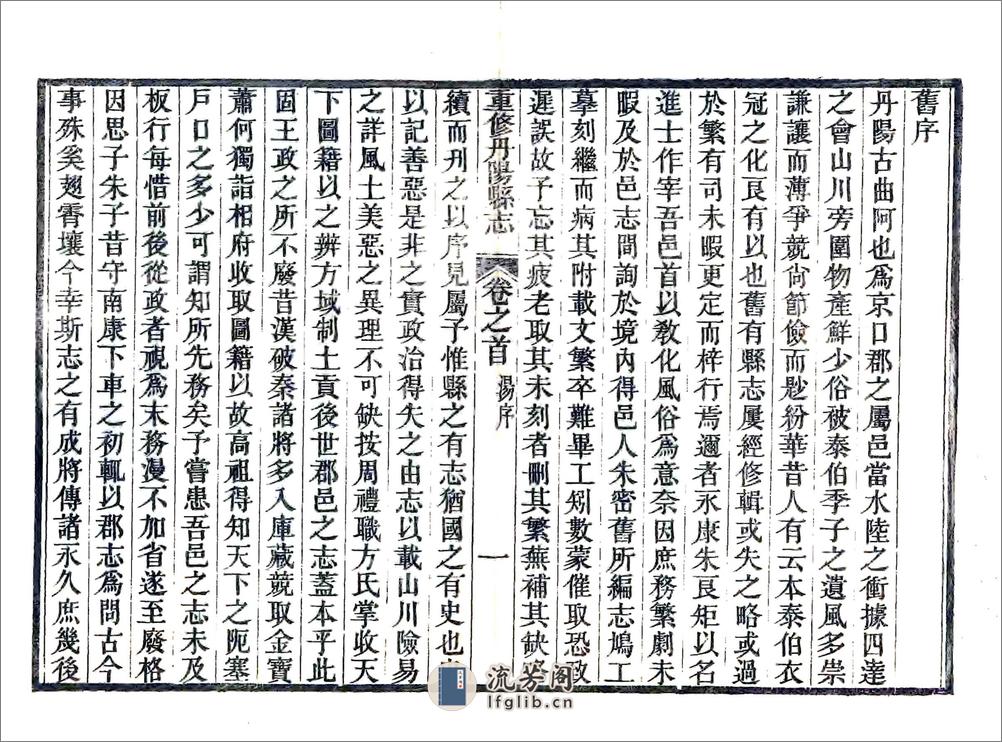 舊序
丹陽古曲阿也爲京口郡之屬邑當水陸之衝據四達
之會山川旁圍物產鮮少俗破泰伯季子之遺風多崇
謙讓而薄爭競尙節儉而尠紛華昔人有云本泰伯衣
冠之化良有以也舊有縣志屢經修輯或失之略或過
於繁有司未暇更定而梓行焉邇者永康朱良矩以名
進士作宰吾邑首以敎化風俗爲意奈因庶務繁劇未
暇及於邑志間詢於境內得邑人朱密舊所編志鳩工
摹刻繼而病其附載文繁卒難畢工矧數蒙催取恐致
遲誤故予忘其疲老取其未刻者刪其繁蕪補其缺
續而刋之以序見屬予惟縣之有志猶國之有史也
以記善惡是非之實政治得失之由志以載山川險易
之詳風土美惡之異理不可缺按周禮職方氏掌收天
下圖籍以之辨方域制土貢後世郡邑之志蓋本乎此
固王政之所不廢昔漢破秦諸將多入庫藏競取金寶
蕭何獨詣相府收取圖籍以故高祖得知天下之阨塞
戶口之多少可謂知所先務矣予嘗患吾邑之志未及
板行每惜前後從政者視爲末務漫不加省遂至廢格
因思子朱子昔守南康下車之初輒以郡志爲問古今
事殊奚趐霄壤今幸斯志之有成將傳諸永久庶幾後
重修丹陽縣志 卷之首 湯序 一
流芳阁
lfglib.cn